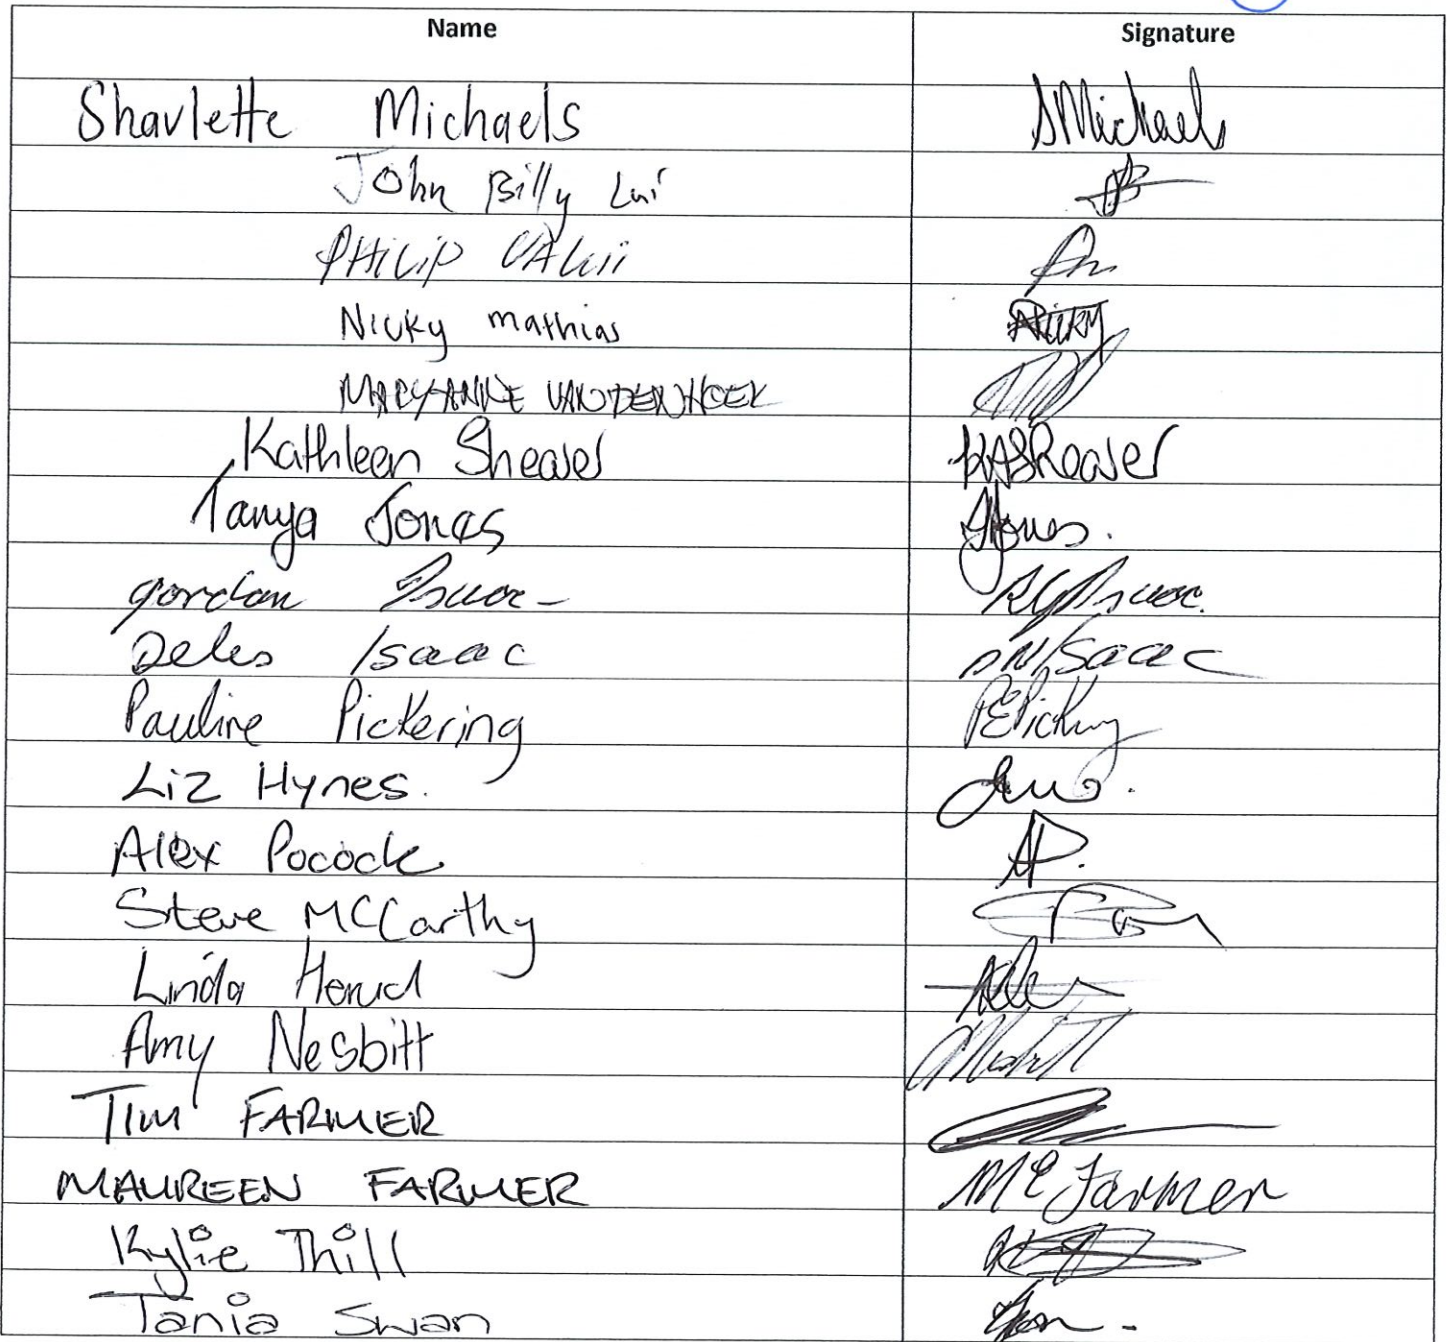 Name Signature
Sharlette Michaels SMichaels
John Billy Lui
PHILIP
Nicky mathias Nicky
MARYANNE VANDENHOEK
Kathleen Shearer KAShearer
Tanya Jones TJones.
gordon Isaac Isaac.
Deles Isaac DN Isaac
Pauline Pickering PEPickering
Liz Hynes.
Alex Pocock AP.
Steve McCarthy
Linda
Amy Nesbitt Nesbitt
TIM FARMER
MAUREEN FARMER ME Farmer
Kylie Thill
Tania Swan